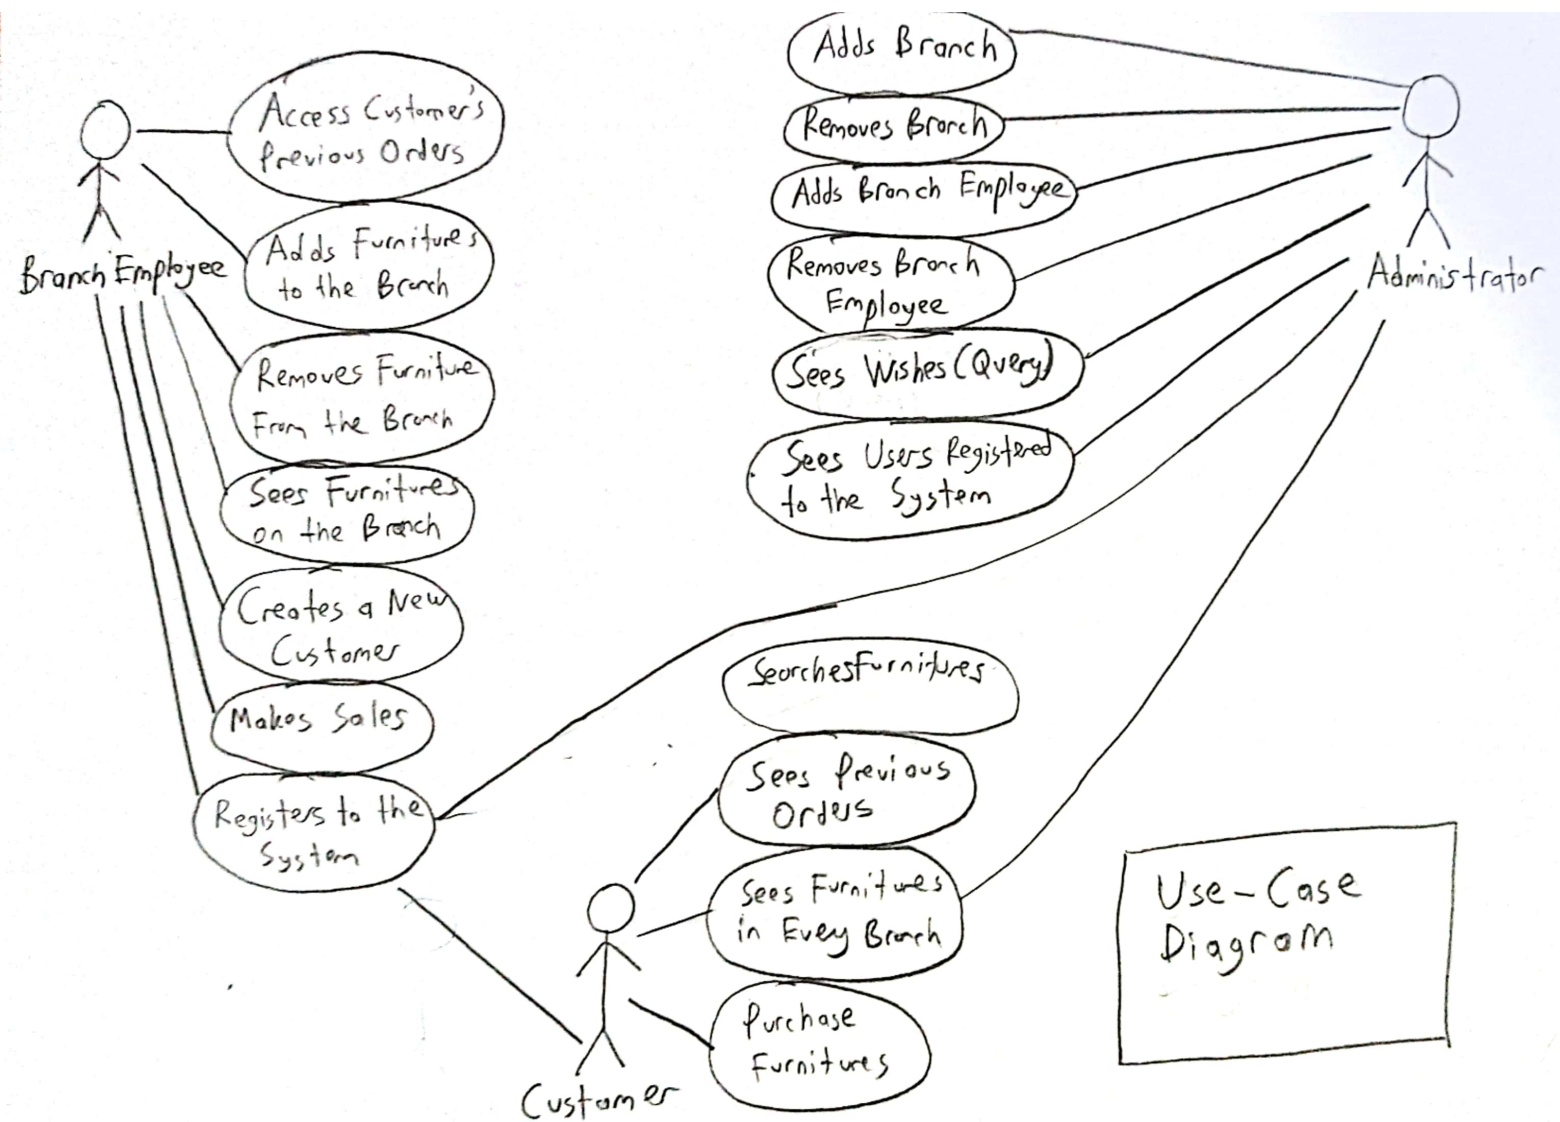 Access Customer's
Previous Orders
Adds Furnitures
to the Branch
Branch Employee
Removes Furniture
From the Branch
Sees Furnitures
on the Branch
Creates a New
Customer
Makes Sales
Registers to the
System
Adds Branch
Removes Branch
Adds Branch Employee
Removes Branch
Employee
Sees Wishes (Query)
Sees Users Registered
to the System
Administrator
SearchesFurnitures
Sees Previous
Orders
Sees Furnitures
in Evey Branch
Purchase
Furnitures
Customer
Use-Case
Diagram